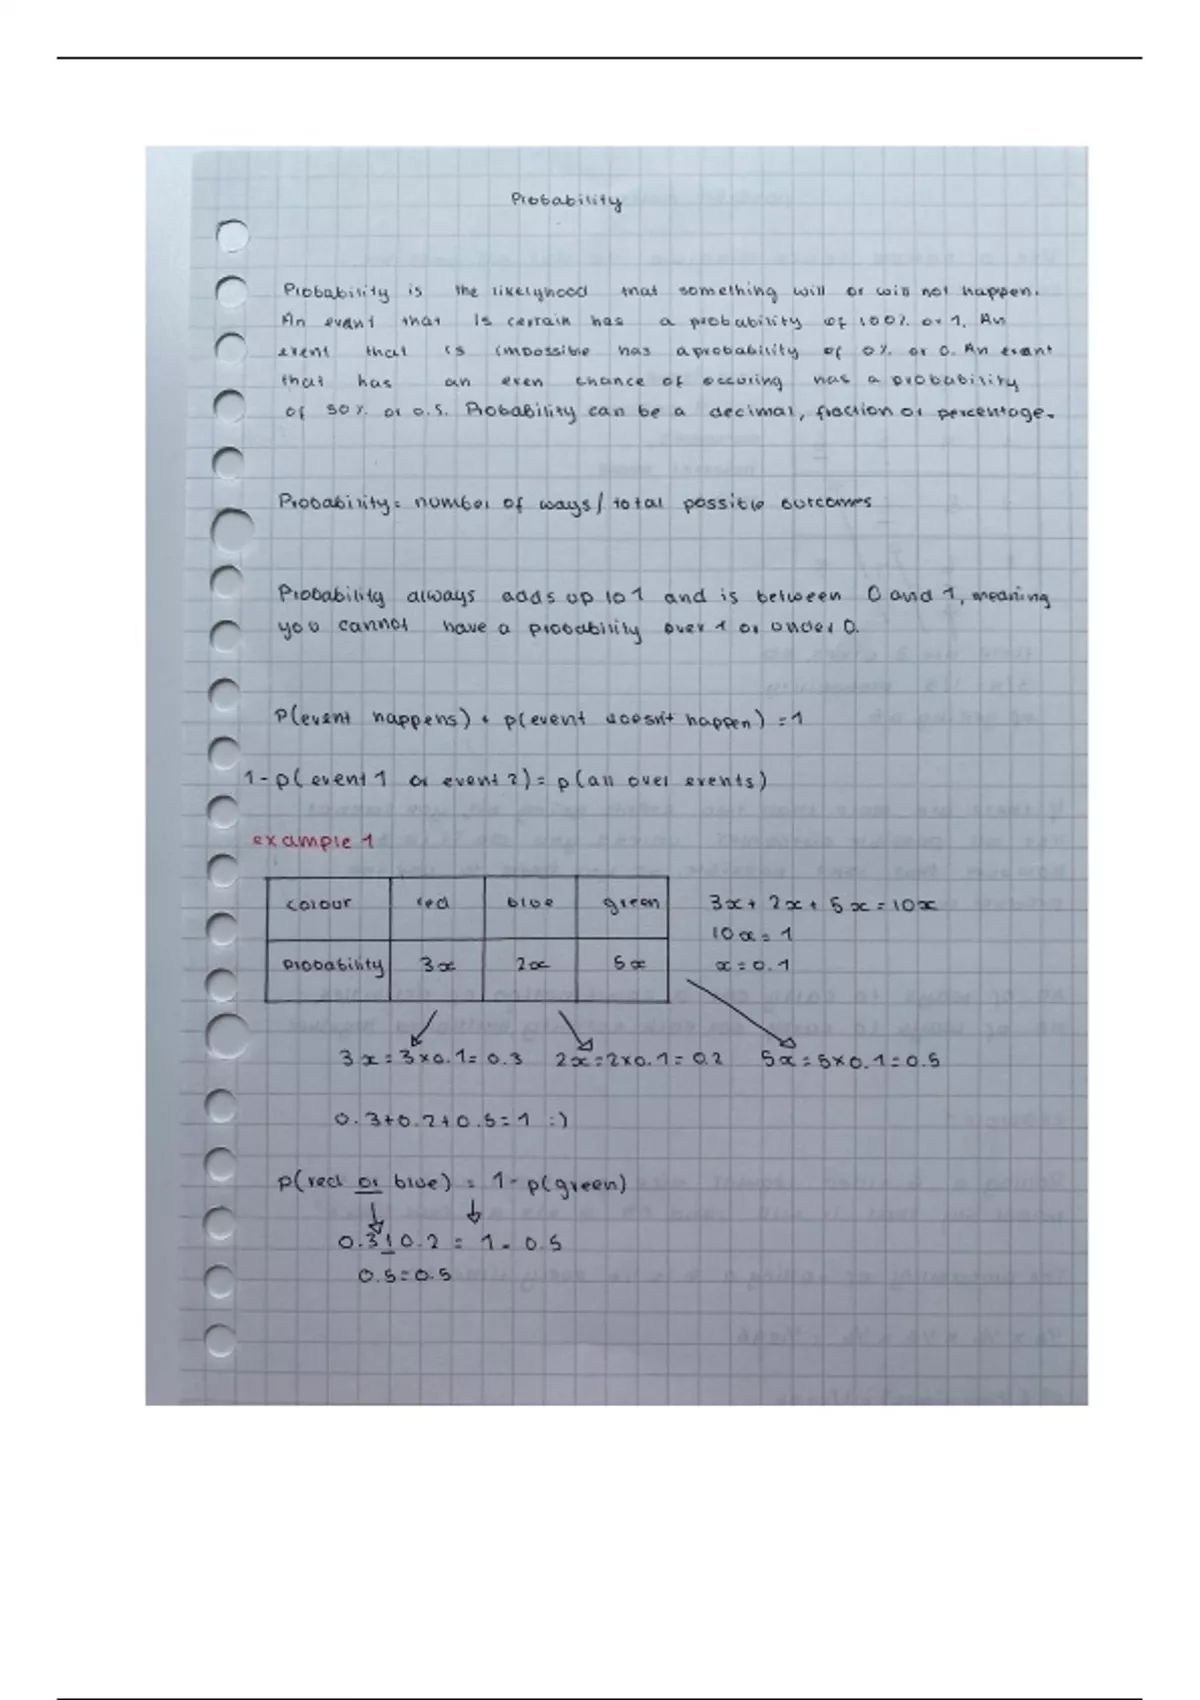 Probability
Probability is the likelyhood that something will or will not happen.
An event that is certain has a probability of 100% or 1. An
event that is impossible has a probability of 0% or 0. An event
that has an even chance of occuring has a probability
of 50% or 0.5. Probability can be a decimal, fraction or percentage.
Probability = number of ways / total possible outcomes
Probability always adds up to 1 and is between 0 and 1, meaning
you cannot have a probability over 1 or under 0.
P(event happens) + p(event doesn't happen) = 1
1 - p(event 1 or event 2) = p(all over events)
example 1
colour red blue green
probability 3x 2x 5x
3x + 2x + 5x = 10x
10x = 1
x = 0.1
3x = 3x0.1 = 0.3 2x = 2x0.1 = 0.2 5x = 5x0.1 = 0.5
0.3+0.2+0.5=1 :)
p(red or blue) = 1 - p(green)
0.3+0.2 = 1 - 0.5
0.5 = 0.5